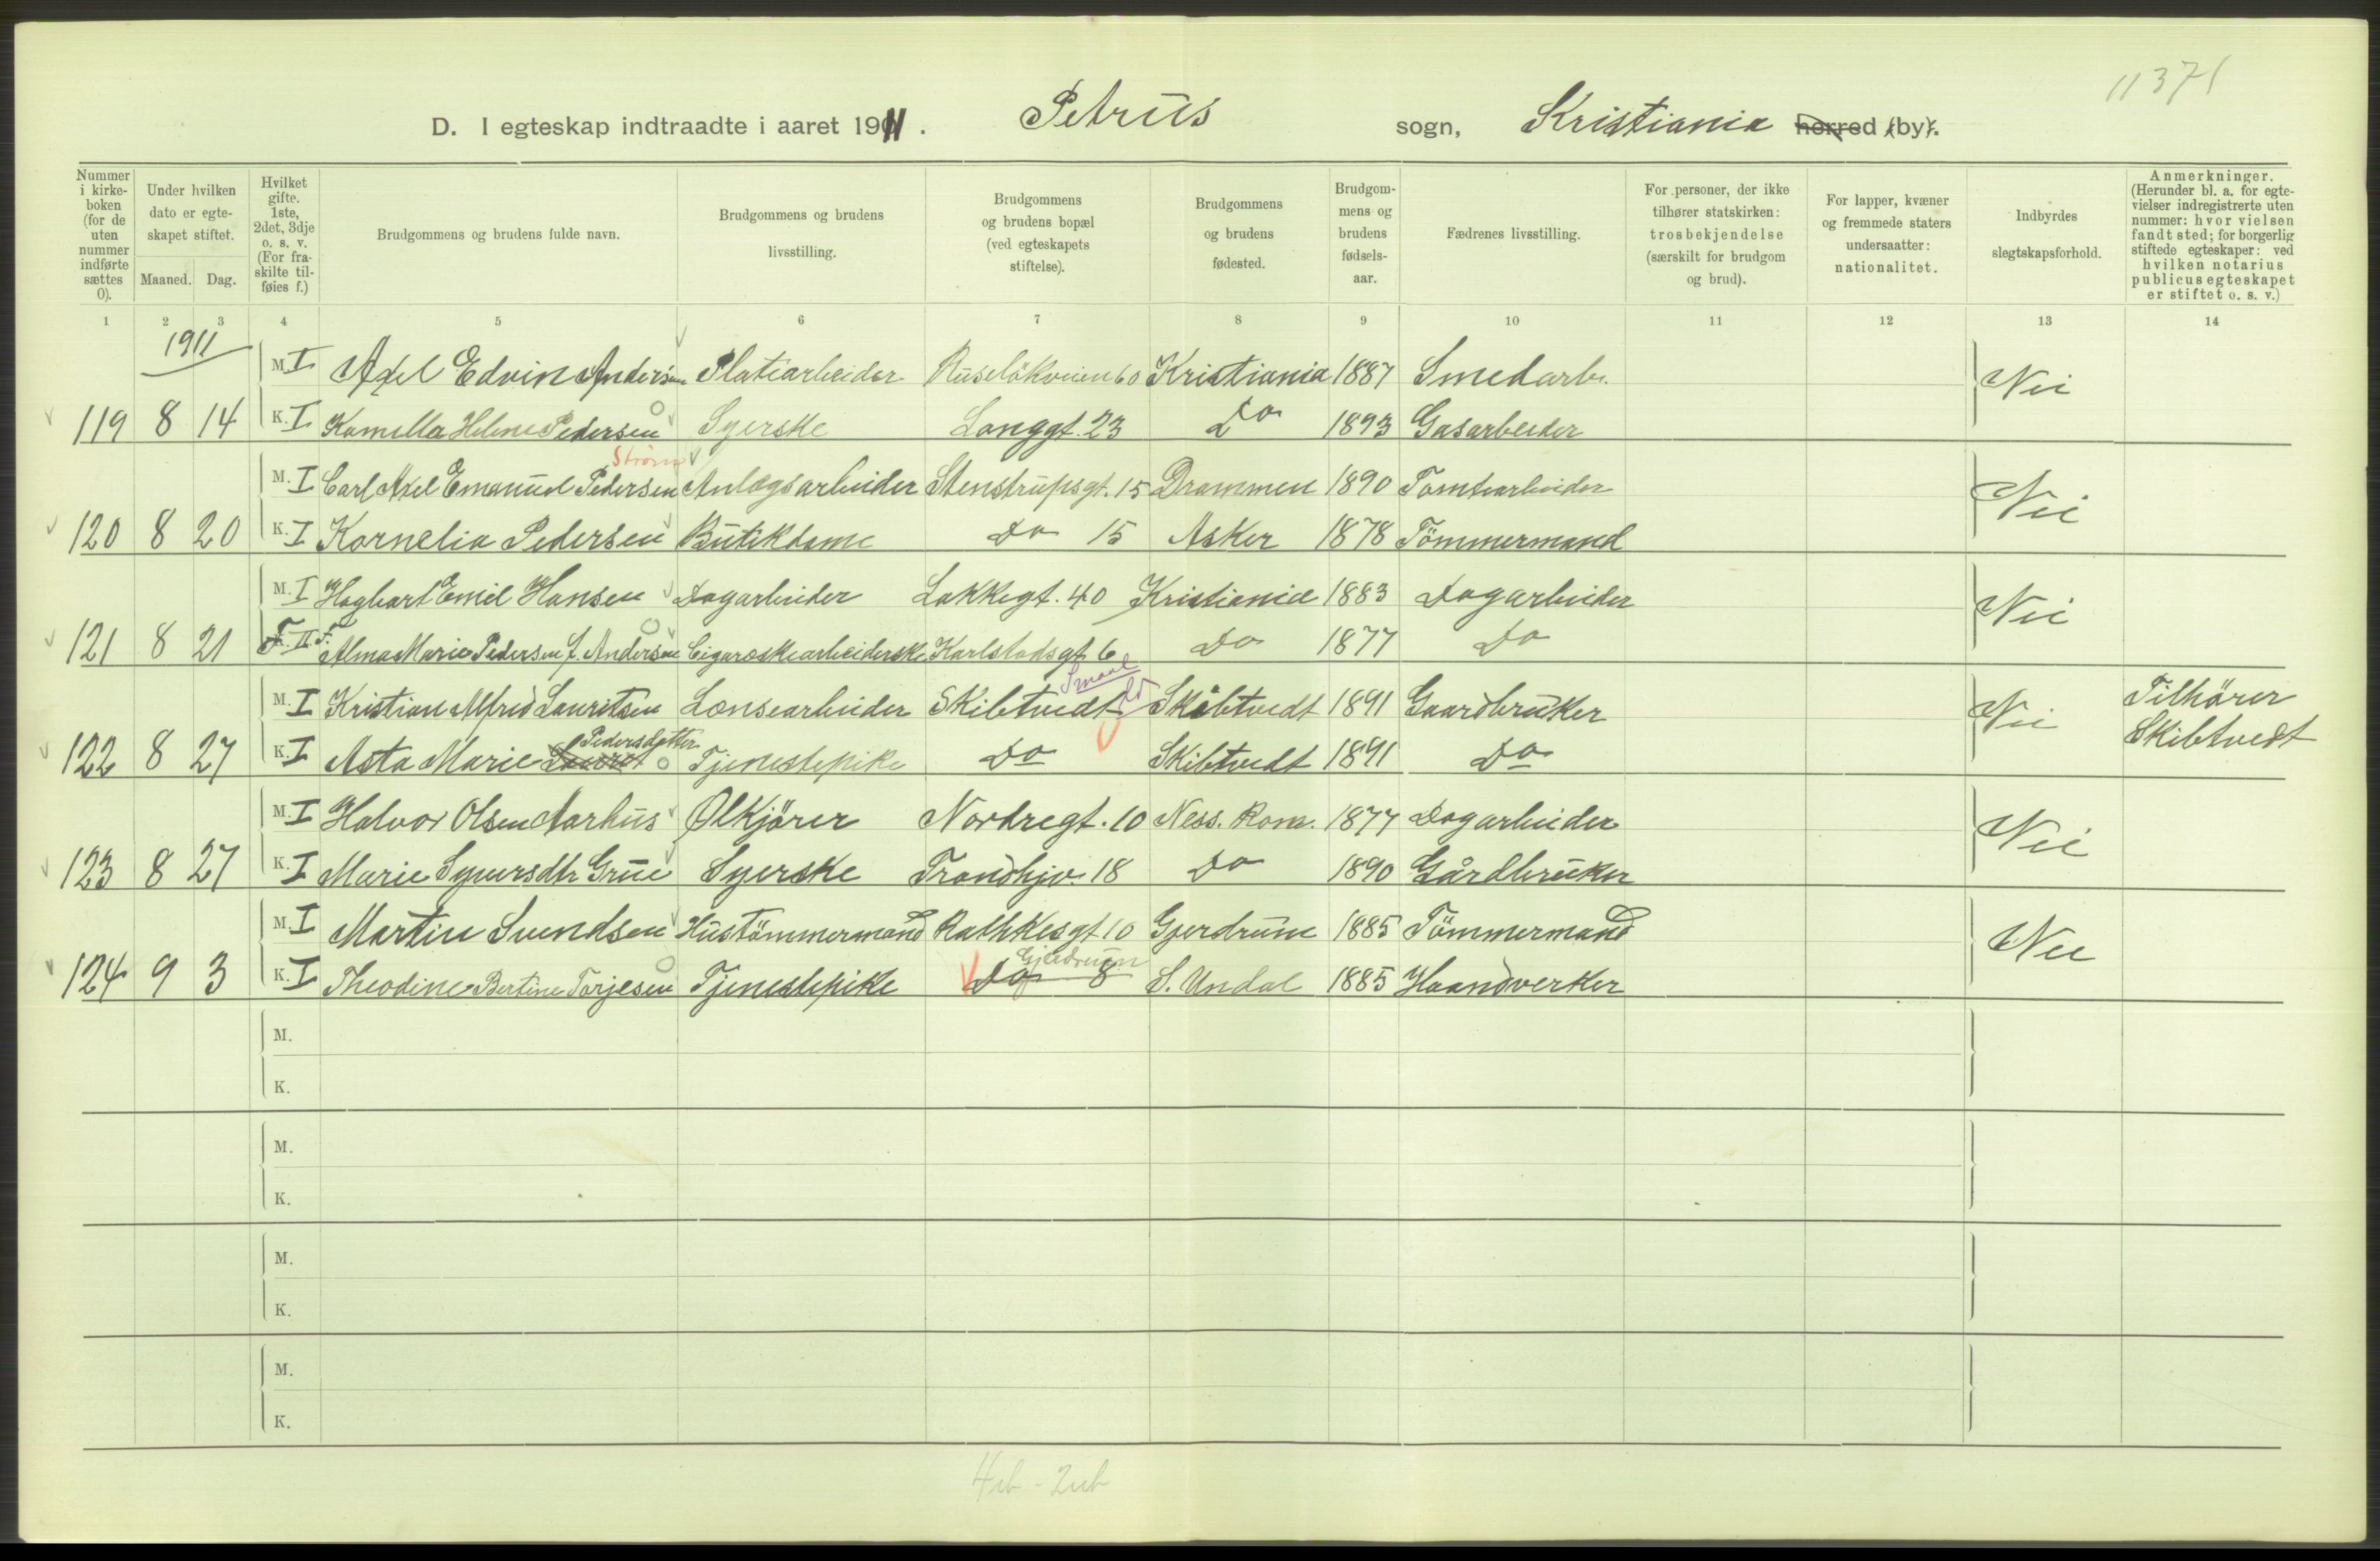 11371
D. I egteskap indtraadte i aaret 1911. Petrus sogn, Kristiania herred (by).
Nummer i kirkeboken (for de uten nummer indførte sættes 0).
Under hvilken dato er egteskapet stiftet.
Maaned. Dag.
Hvilket gifte. 1ste, 2det, 3dje o. s. v. (For fraskilte tilføies f.)
Brudgommens og brudens fulde navn.
Brudgommens og brudens livsstilling.
Brudgommens og brudens bopæl (ved egteskapets stiftelse).
Brudgommens og brudens fødested.
Brudgommens og brudens fødselsaar.
Fædrenes livsstilling.
For personer, der ikke tilhører statskirken: trosbekjendelse (særskilt for brudgom og brud).
For lapper, kvæner og fremmede staters undersaatter: nationalitet.
Indbyrdes slegtskapsforhold.
Anmerkninger. (Herunder bl. a. for egtevielser indregistrerte uten nummer: hvor vielsen fandt sted; for borgerlig stiftede egteskaper: ved hvilken notarius publicus egteskapet er stiftet o. s. v.)
1 2 3 4 5 6 7 8 9 10 11 12 13 14
1911
M. I Axel Edvin Andersen Platearbeider Ruseløkveien 60 Kristiania 1887 Smedarb. Nei
119 8 14 K. I Kamilla Helene Pedersen Syerske Langgt. 23 Do 1893 Gasarbeider
Strøm
M. I Carl Axel Emanuel Pedersen Anlægsarbeider Stenstrupsgt. 15 Drammen 1890 Tomtearbeider Nei
120 8 20 K. I Kornelia Pedersen Butikdame Do 15 Asker 1878 Tömmermand
M. I Hagbart Emil Hansen Dagarbeider Lakkegt. 40 Kristiania 1883 Dagarbeider Nei
121 8 21 K. II F. Alma Marie Pedersen f. Andersen Cigaræskearbeiderske Karlstadsgt 6 Do 1877 Do
Smaal
M. I Kristian Alfred Lauritsen Lænsearbeider Skibtvedt Skibtvedt 1891 Gaardbruker Nei Tilhörer Skibtvedt
Pedersdatter
122 8 27 K. I Asta Marie Tjenestepike Do Skibtvedt 1891 Do
M. I Halvor Olsen Aarhus Ølkjörer Nordregt. 10 Ness. Rom. 1877 Dagarbeider Nei
123 8 27 K. I Marie Syversdtr Grue Syerske Trondhjv. 18 Do 1890 Gårdbruker
M. I Martin Svendsen Hustömmermand Rathkesgt 10 Gjerdrum 1885 Tömmermand Nei
Gjerdrum
124 9 3 K. I Theodine Bertine Torjesen Tjenestepike Do 8 S. Undal 1885 Haandverker
M.
K.
M.
K.
M.
K.
M.
K.
4 ub - 2 ub